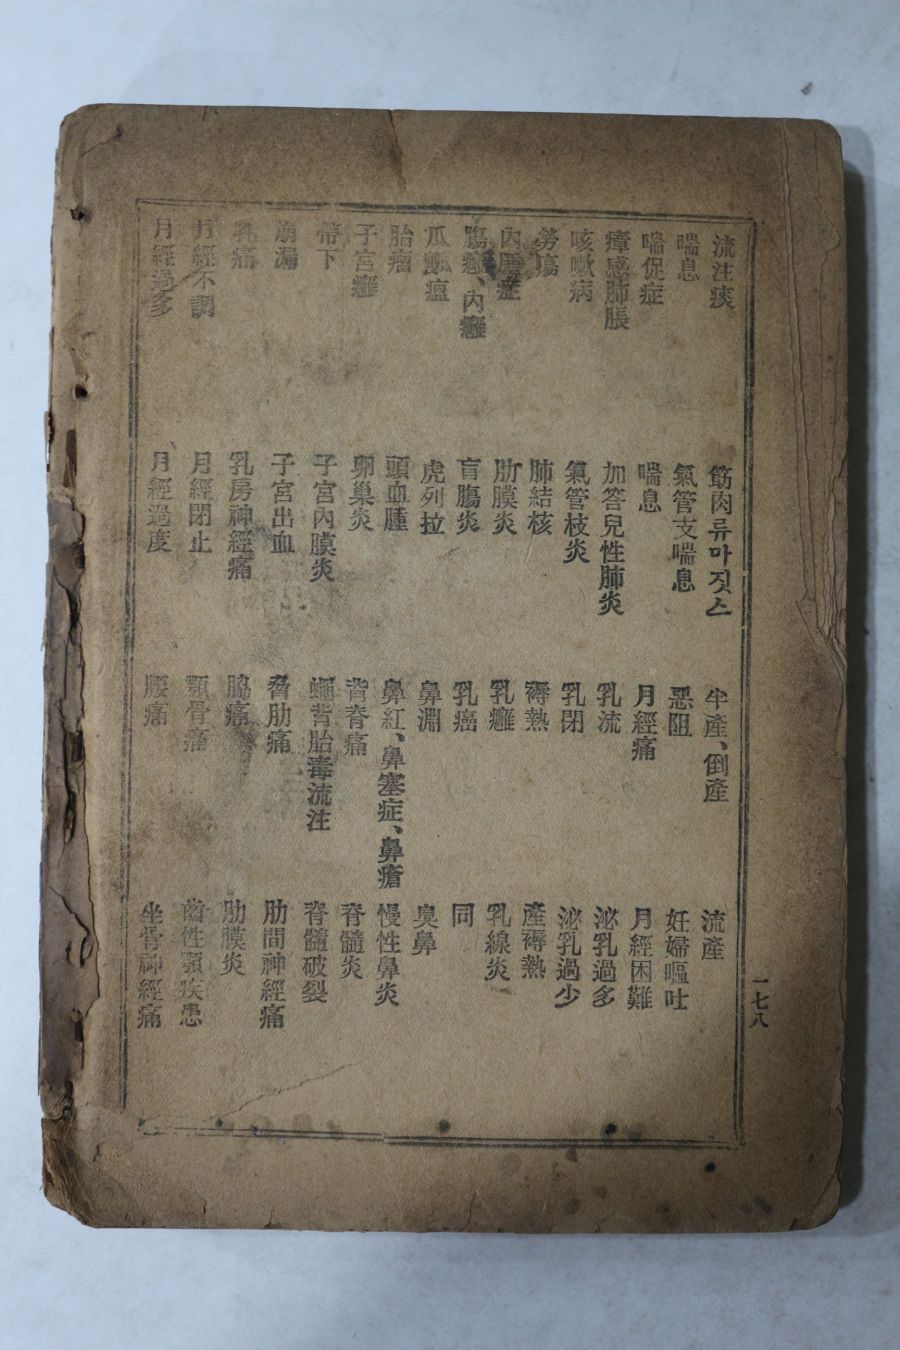 一七八
流注痰 筋肉류마짓스 半產、倒產 流產
喘息 氣管支喘息 悪阻 妊婦嘔吐
喘促症 喘息 月經痛 月經困難
瘴感肺脹 加答兒性肺炎 乳流 泌乳過多
咳嗽病 氣管枝炎 乳閉 泌乳過少
勞瘍 肺結核 褥熱 產褥熱
內症 肋膜炎 乳癰 乳線炎
腸癰、內癰 盲腸炎 乳癌 同
瓜瓤瘟 虎列拉 鼻淵 臭鼻
胎瘤 頭血腫 鼻紅、鼻塞症、鼻瘡 慢性鼻炎
子宮癰 卵巢炎 背脊痛 脊髓炎
帶下 子宮內膜炎 背胎毒流注 脊髓破裂
崩漏 子宮出血 脅肋痛 肋間神經痛
乳痛 乳房神經痛 脇痛 肋膜炎
月經不調 月經閉止 顎骨痛 齒性顎疾患
月經過多 月經過度 腰痛 坐骨神經痛